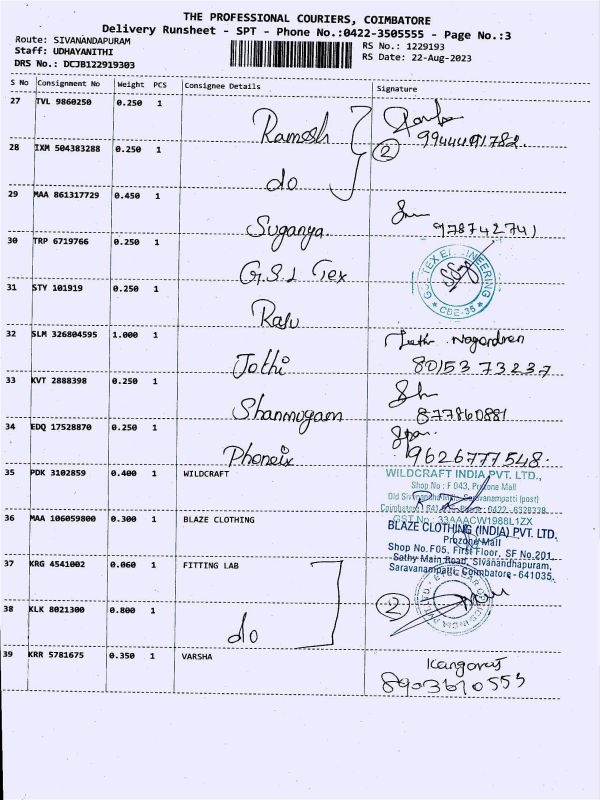 THE PROFESSIONAL COURIERS, COIMBATORE
Delivery Runsheet - SPT - Phone No.:0422-3505555 - Page No.:3
Route: SIVANANDAPURAM
Staff: UDHAYANITHI
DRS No.: DCJB122919303
RS No.: 1229193
RS Date: 22-Aug-2023
S No Consignment No Weight PCS Consignee Details Signature
27 TVL 9860250 0.250 1 Ramesh
9944491782.
28 IXM 504383288 0.250 1 do
2
29 MAA 861317729 0.450 1 Suganya.
978742741
30 TRP 6719766 0.250 1 G.S.L Tex
CBE-35
31 STY 101919 0.250 1 Raju
32 SLM 326804595 1.000 1 Jothi
Nagendren
8015373237
33 KVT 2888398 0.250 1 Shanmugam
877860881
34 EDQ 17528870 0.250 1 Phoneix
9626777548.
35 PDK 3102859 0.400 1 WILDCRAFT
WILDCRAFT INDIA PVT. LTD.,
Shop No : F 043, Prozone Mall
Old Sivanandha Saravanampatti (post)
Coimbatore
GST No : 33AAACW1988L1ZX
36 MAA 106059800 0.300 1 BLAZE CLOTHING
BLAZE CLOTHING (INDIA) PVT. LTD.
Prozone Mall
Shop No. F05, First Floor, SF No.201,
Sathy Main Road, Sivanandhapuram,
Saravanampatti, Coimbatore - 641035.
37 KRG 4541002 0.060 1 FITTING LAB
38 KLK 8021300 0.800 1 do
2
39 KRR 5781675 0.350 1 VARSHA
Kangaraj
8903610553